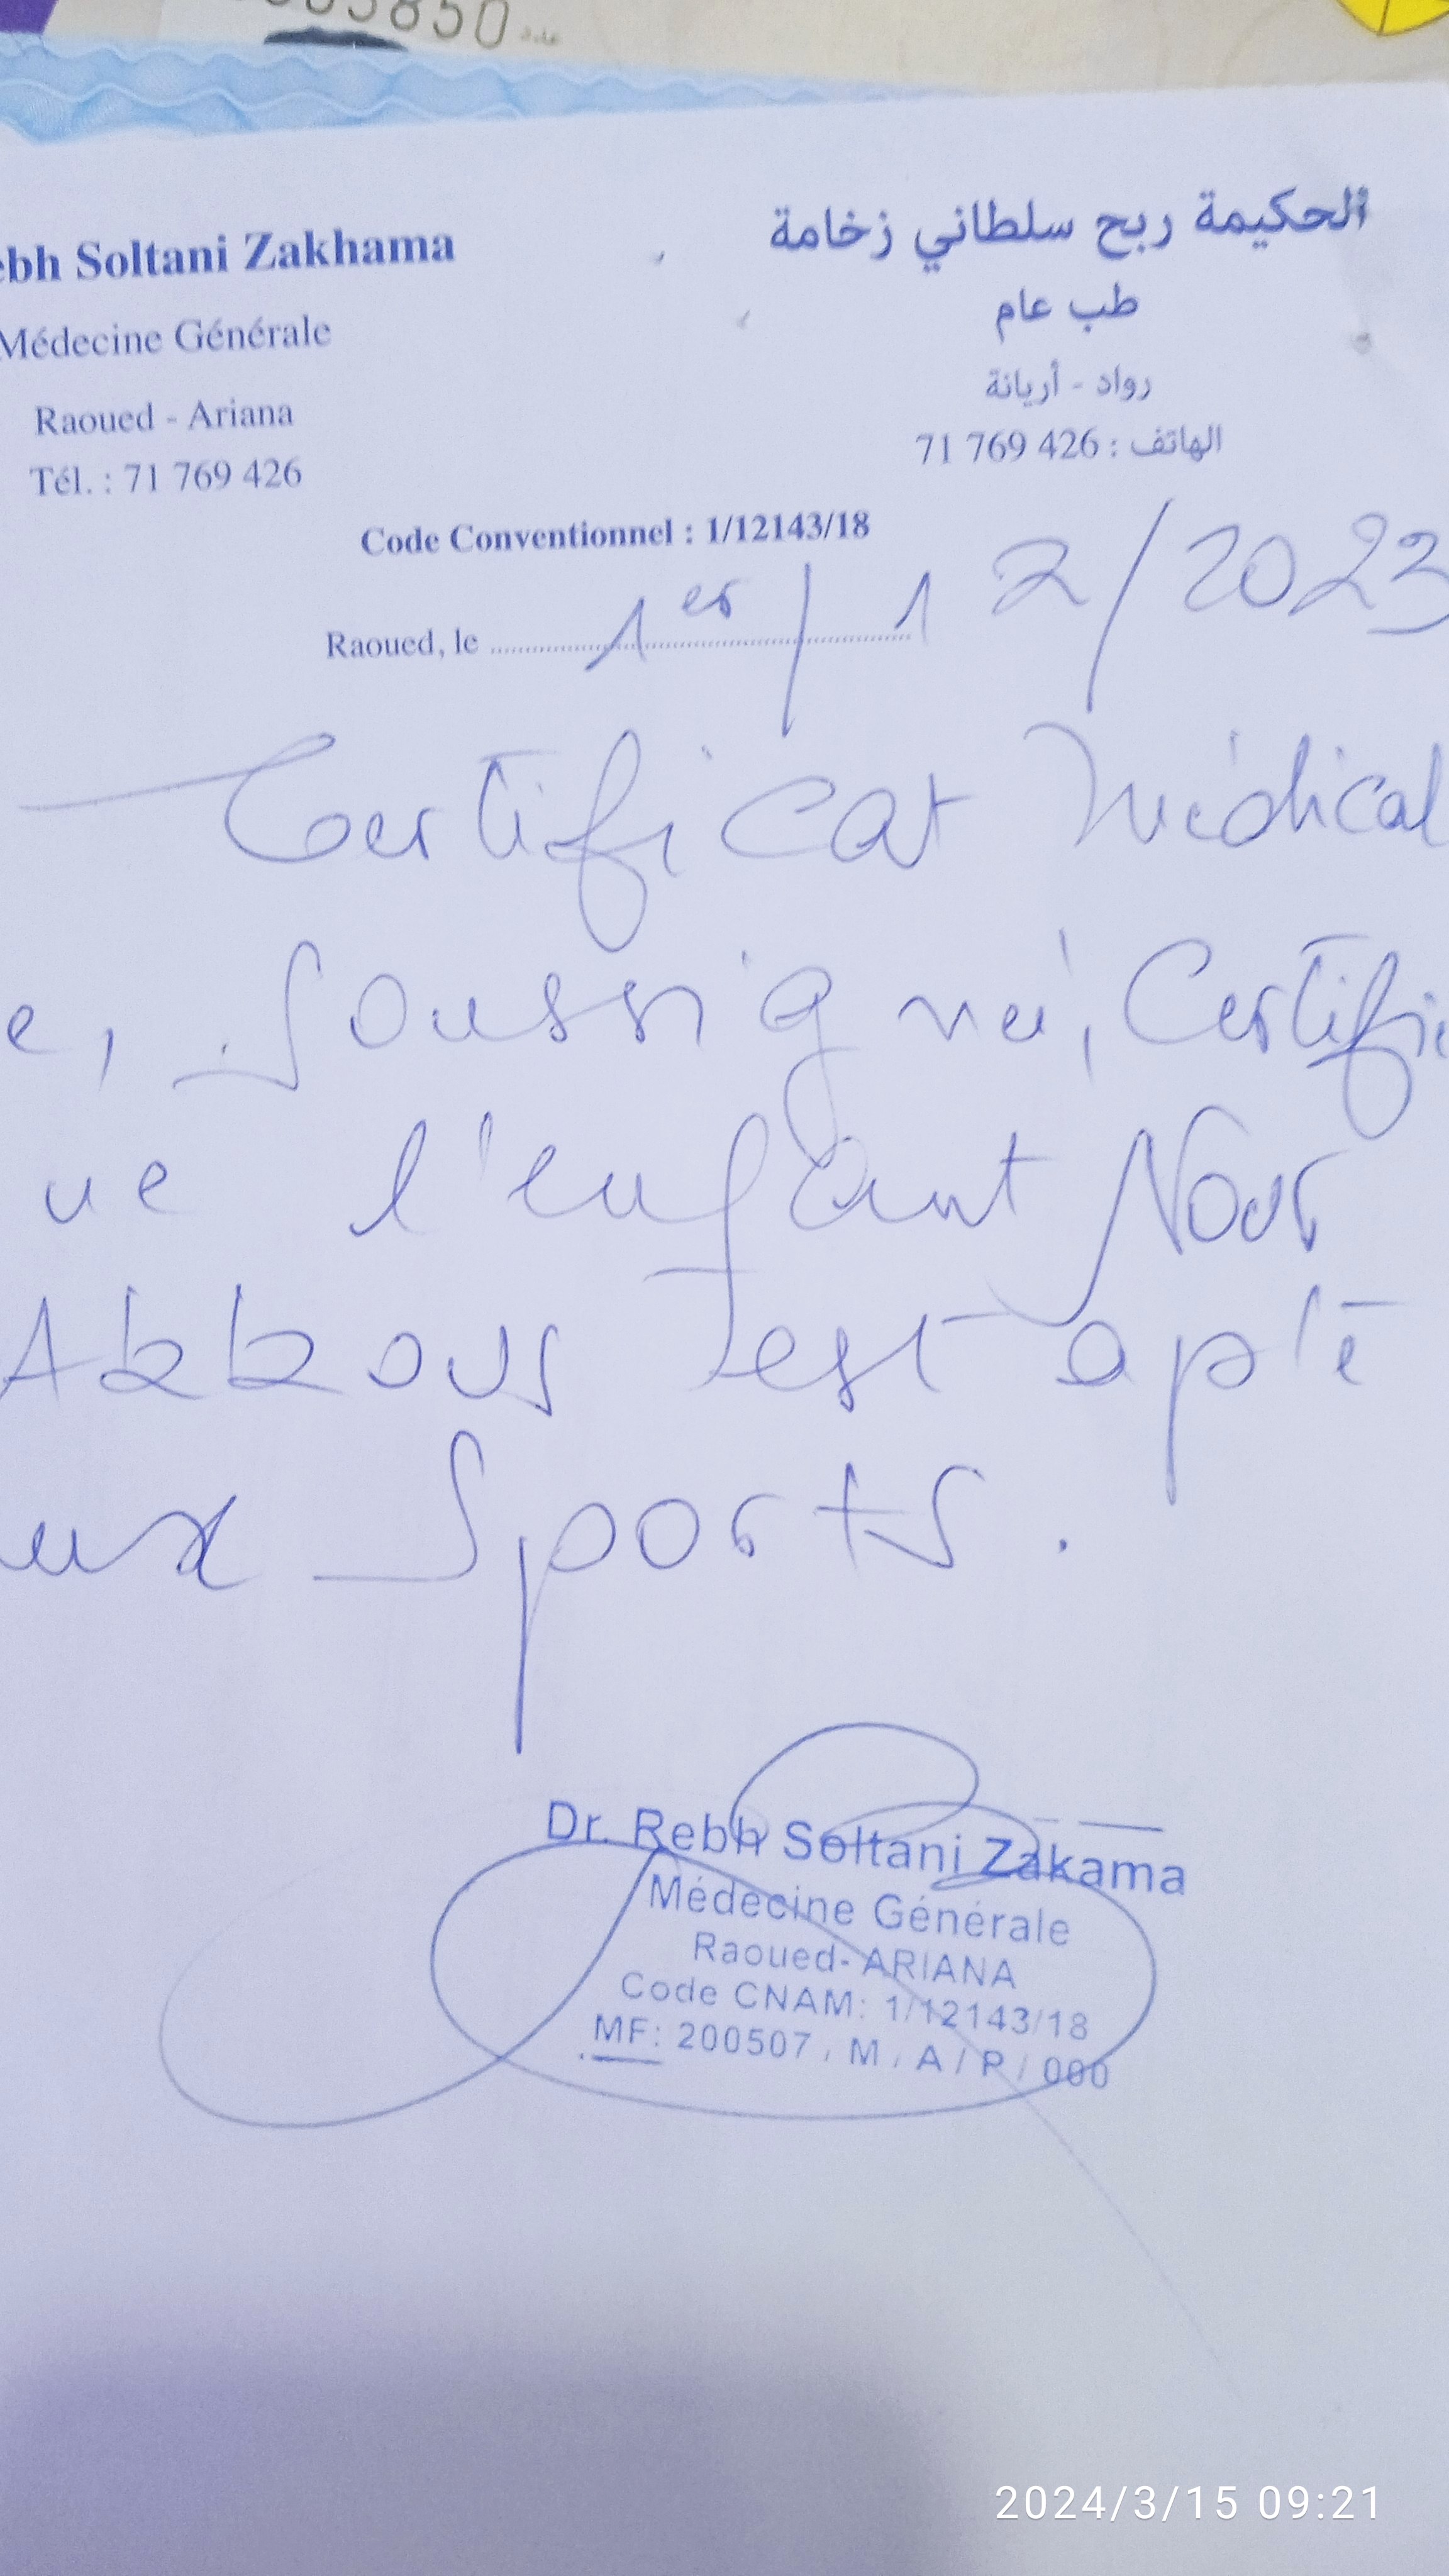 850
ebh Soltani Zakhama
Médecine Générale
Raoued - Ariana
Tél. : 71 769 426
الحكيمة ربح سلطاني زخامة
طب عام
رواد - أريانة
الهاتف : 426 769 71
Code Conventionnel : 1/12143/18
Raoued, le 1er/12/2023
Certificat Médical
e, Soussigné, Certifie
ue l'enfant Nour
Abbous est apte
ux Sports.
Dr. Rebh Soltani Zakama
Médecine Générale
Raoued- ARIANA
Code CNAM: 1/12143/18
MF: 200507 / M / A / P / 000
2024/3/15 09:21